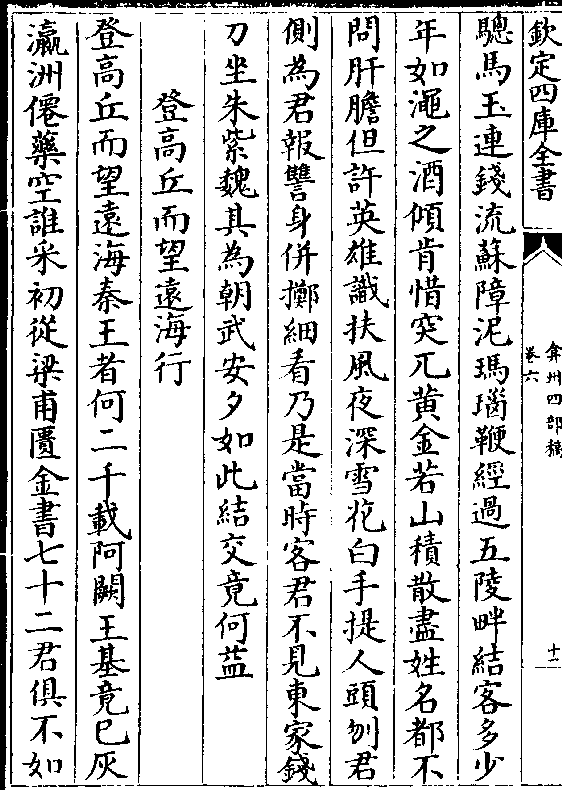 欽定四庫全書
弇州四部稿
卷六
十二
驄馬玉連錢流蘇障泥瑪瑙鞭經過五陵畔結客多少
年如澠之酒傾肯惜突兀黄金若山積散盡姓名都不
問肝膽但許英雄識扶風夜深雪花白手提人頭刎君
側為君報讐身併擲細看乃是當時客君不見東家錢
刀坐朱紫魏其為朝武安夕如此結交竟何益
登高丘而望遠海行
登高丘而望遠海秦王者何二千載阿闕王基竟已灰
瀛洲僊藥空誰采初從梁甫匱金書七十二君俱不如